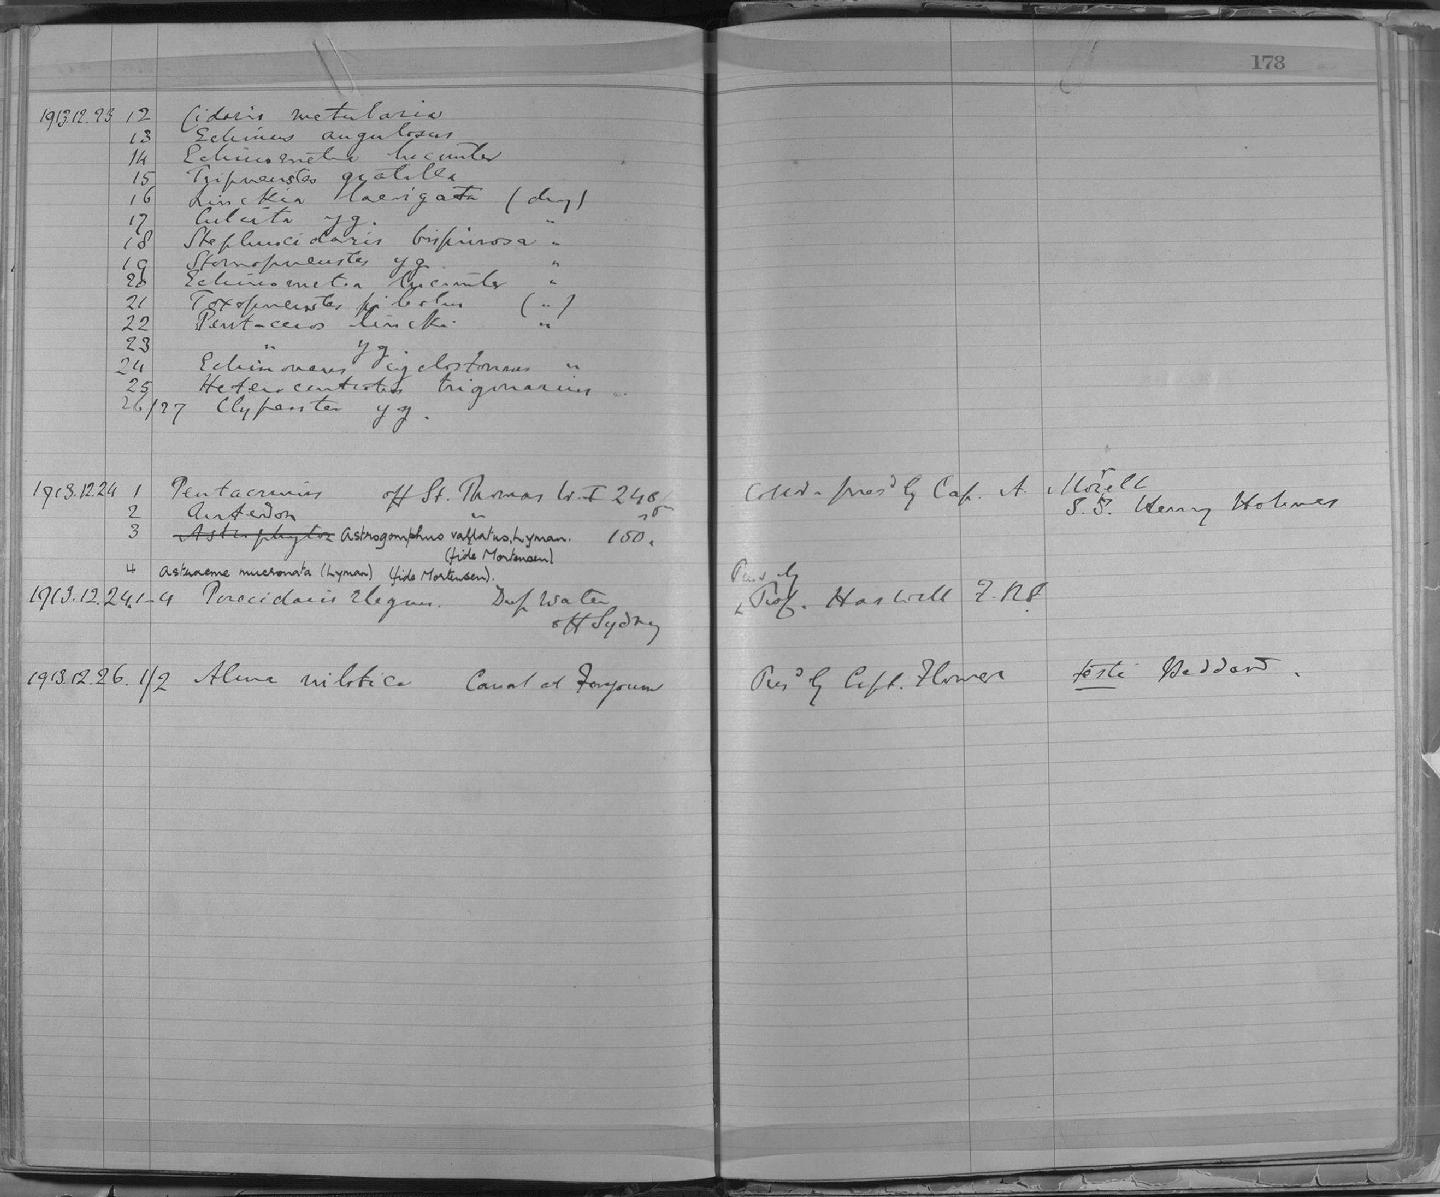 173
1913.12.23 12 Cidaris metularia
13 Echinus angulosus
14 Echinometra lucunter
15 Tripneustes gratilla
16 Linckia laevigata (dry)
17 Culcita yg. "
18 Stephanocidaris bispinosa "
19 Stomopneustes yg. "
20 Echinometra lucunter "
21 Toxopneustes pileolus (")
22 Pentaceros lincki "
23 " yg.
24 Echinoneus cyclostomus "
25 Heterocentrotus trigonarius "
26/27 Clypeaster yg.
1913.12.24 1 Pentacrinus off St. Thomas W.I Coll. & pres^d by Cap. A. Morell
2 Antedon " S.S. Henry Holmes
3 Astrophyton Astrogomphus vallatus, Lyman. 150.
(fide Mortensen)
4 Astraeme mucronata (Lyman) (fide Mortensen).
1913.12.24.1-4 Porocidaris elegans. Deep Water Pres by Prof. Haswell F.R.S.
off Sydney
1913.12.26. 1/2 Alma nilotica Canal at Pres^d by Capt. Flower teste Beddard.